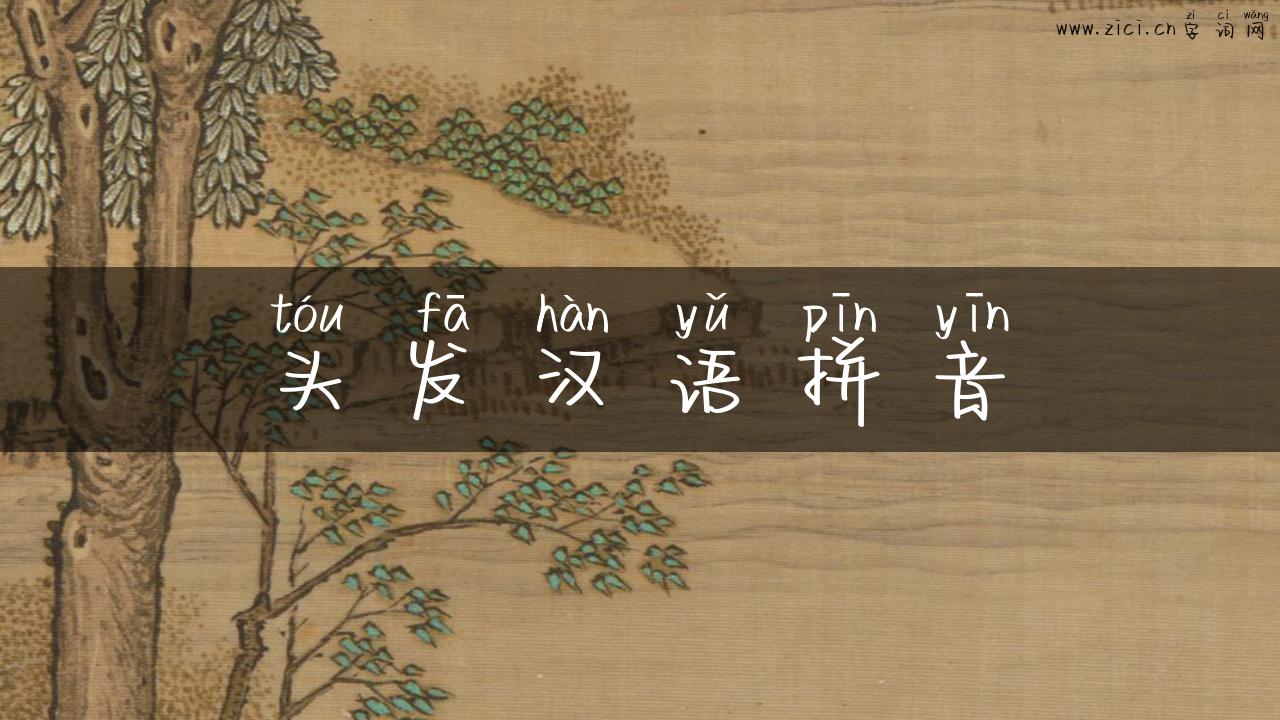 zì cí wǎng
www.zici.cn 字词网
tóu fā hàn yǔ pīn yīn
头发汉语拼音